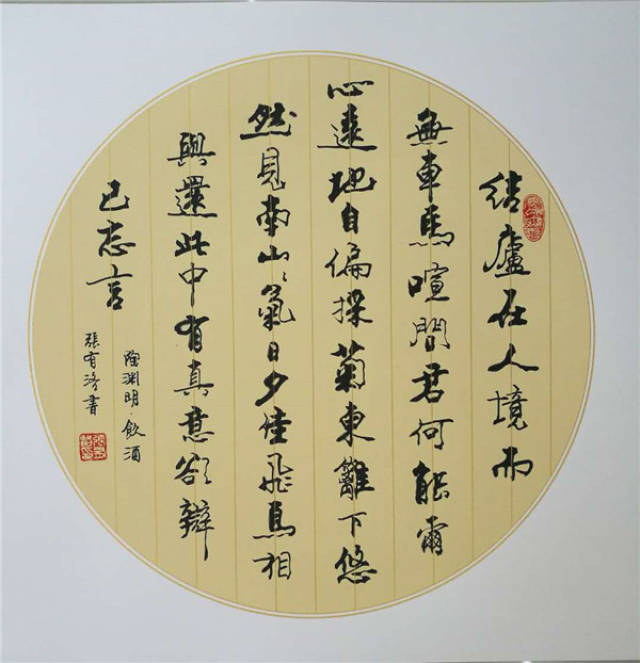 結廬在人境而
無車馬喧問君何能爾
心遠地自偏採菊東籬下悠
然見南山々氣日夕佳飛鳥相
與還此中有真意欲辯
已忘言
陶渊明·飲酒
張有洛書